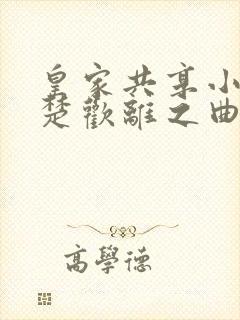 皇家共享小
楚歡離之曲
高學德